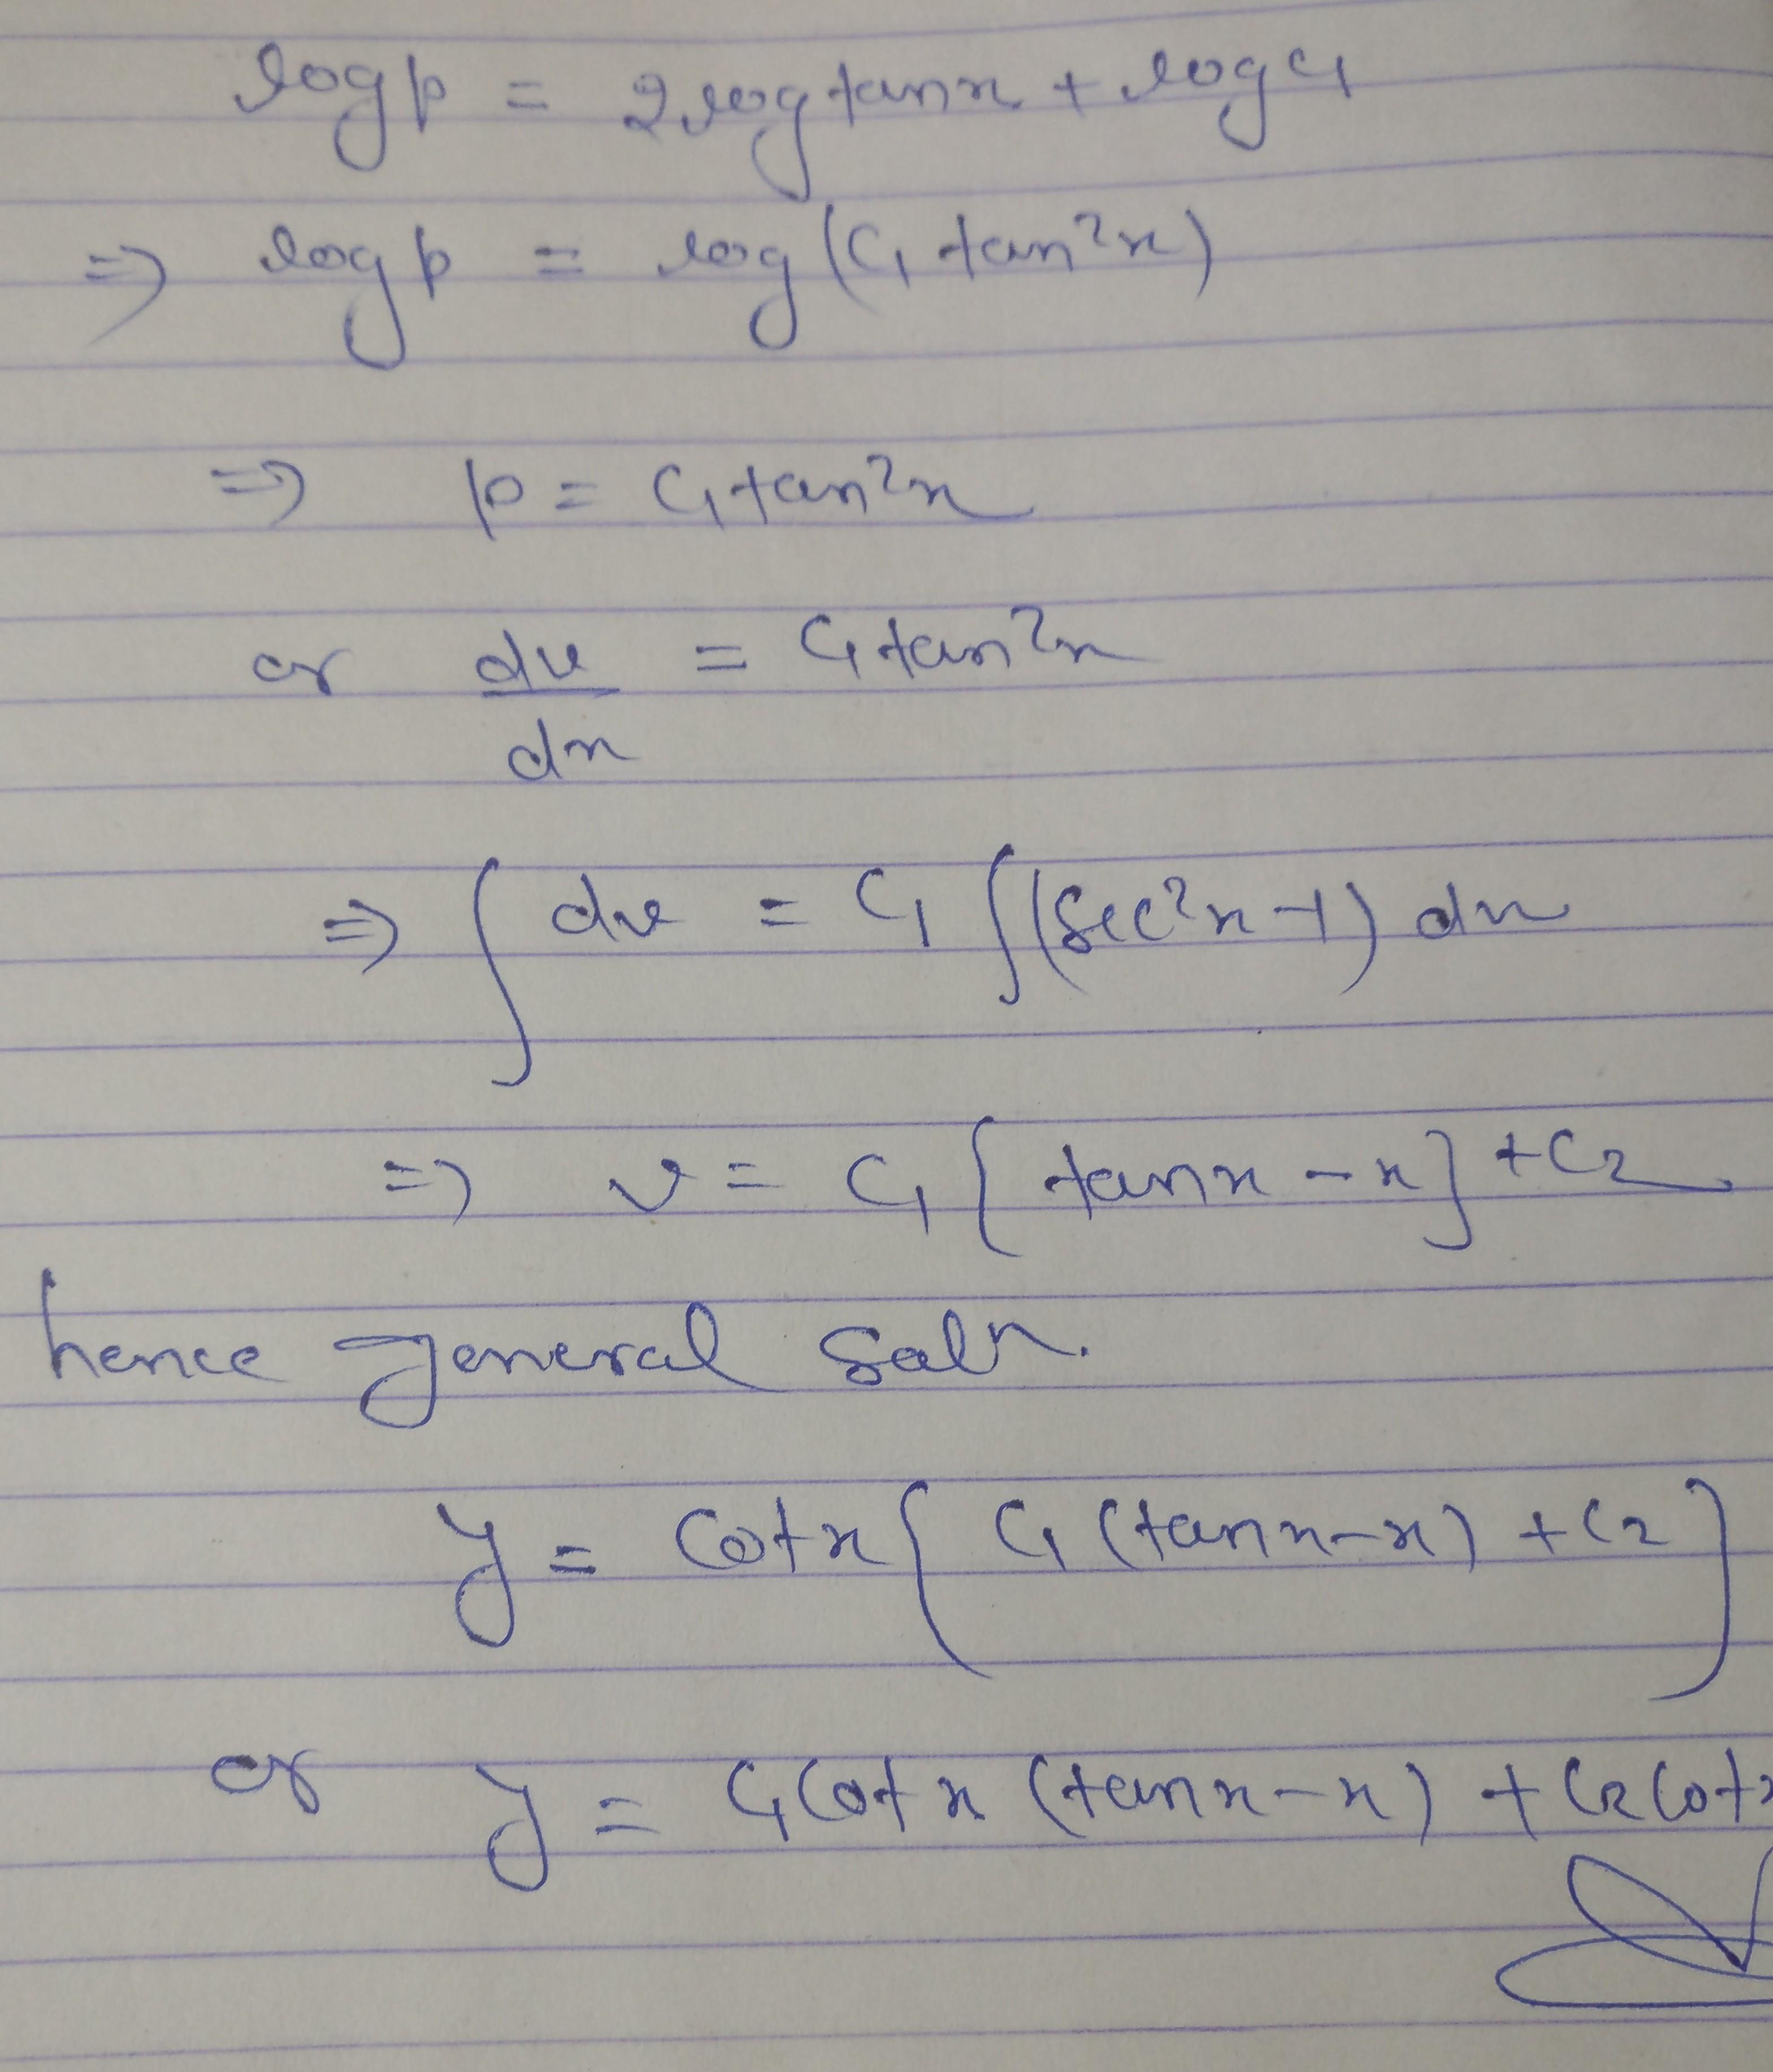 log p = 2 log tan x + log c₁
⇒ log p = log (c₁ tan²x)
⇒ p = c₁ tan²x
or dv/dx = c₁ tan²x
⇒ ∫ dv = c₁ ∫ (sec²x - 1) dx
⇒ v = c₁ [tan x - x] + c₂
hence general Soln.
y = Cot x [c₁ (tan x - x) + c₂]
or y = c₁ Cot x (tan x - x) + c₂ Cot x